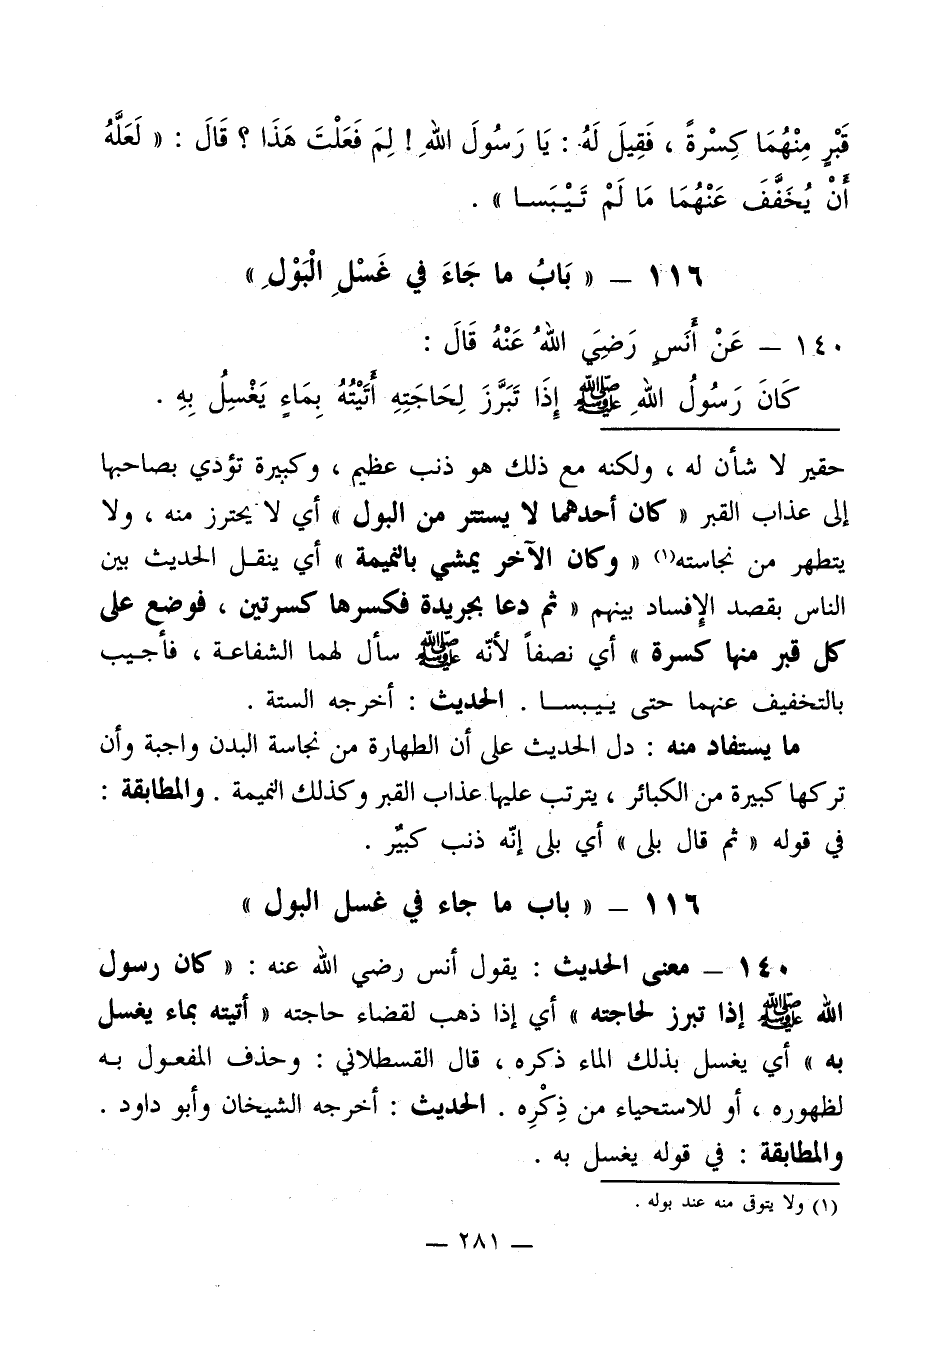 قَبْرٍ مِنْهُمَا كِسْرَةً ، فَقِيلَ لَهُ : يَا رَسُولَ اللهِ ! لِمَ فَعَلْتَ هَذَا ؟ قَالَ : « لَعَلَّهُ
أَنْ يُخَفَّفَ عَنْهُمَا مَا لَمْ تَيْبَسا » .
١١٦ – « بَابُ ما جَاءَ في غَسْلِ الْبَوْلِ »
١٤٠ – عَنْ أَنَسٍ رَضِيَ اللهُ عَنْهُ قَالَ :
كَانَ رَسُولُ اللهِ ﷺ إِذَا تَبَرَّزَ لِحَاجَتِهِ أَتَيْتُهُ بِمَاءٍ يَغْسِلُ بِهِ .
حقير لا شأن له ، ولكنه مع ذلك هو ذنب عظيم ، وكبيرة تؤدي بصاحبها
إلى عذاب القبر « كان أحدهما لا يستتر من البول » أي لا يحترز منه ، ولا
يتطهر من نجاسته(١) « وكان الآخر يمشي بالنميمة » أي ينقل الحديث بين
الناس بقصد الإفساد بينهم « ثم دعا بجريدة فكسرها كسرتين ، فوضع على
كل قبر منها كسرة » أي نصفاً لأنّه ﷺ سأل لهما الشفاعة ، فأجيب
بالتخفيف عنهما حتى ييبسا . الحديث : أخرجه الستة .
ما يستفاد منه : دل الحديث على أن الطهارة من نجاسة البدن واجبة وأن
تركها كبيرة من الكبائر ، يترتب عليها عذاب القبر وكذلك النميمة . والمطابقة :
في قوله « ثم قال بلى » أي بلى إنّه ذنب كبيٌر .
١١٦ – « باب ما جاء في غسل البول »
١٤٠ – معنى الحديث : يقول أنس رضي الله عنه : « كان رسول
الله ﷺ إذا تبرز لحاجته » أي إذا ذهب لقضاء حاجته « أتيته بماء يغسل
به » أي يغسل بذلك الماء ذكره ، قال القسطلاني : وحذف المفعول به
لظهوره ، أو للاستحياء من ذِكْرِه . الحديث : أخرجه الشيخان وأبو داود .
والمطابقة : في قوله يغسل به .
(١) ولا يتوقى منه عند بوله .
– ٢٨١ –